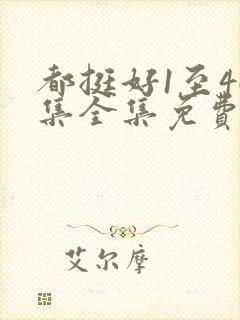 都挺好1至4
集全集免费
艾尔摩